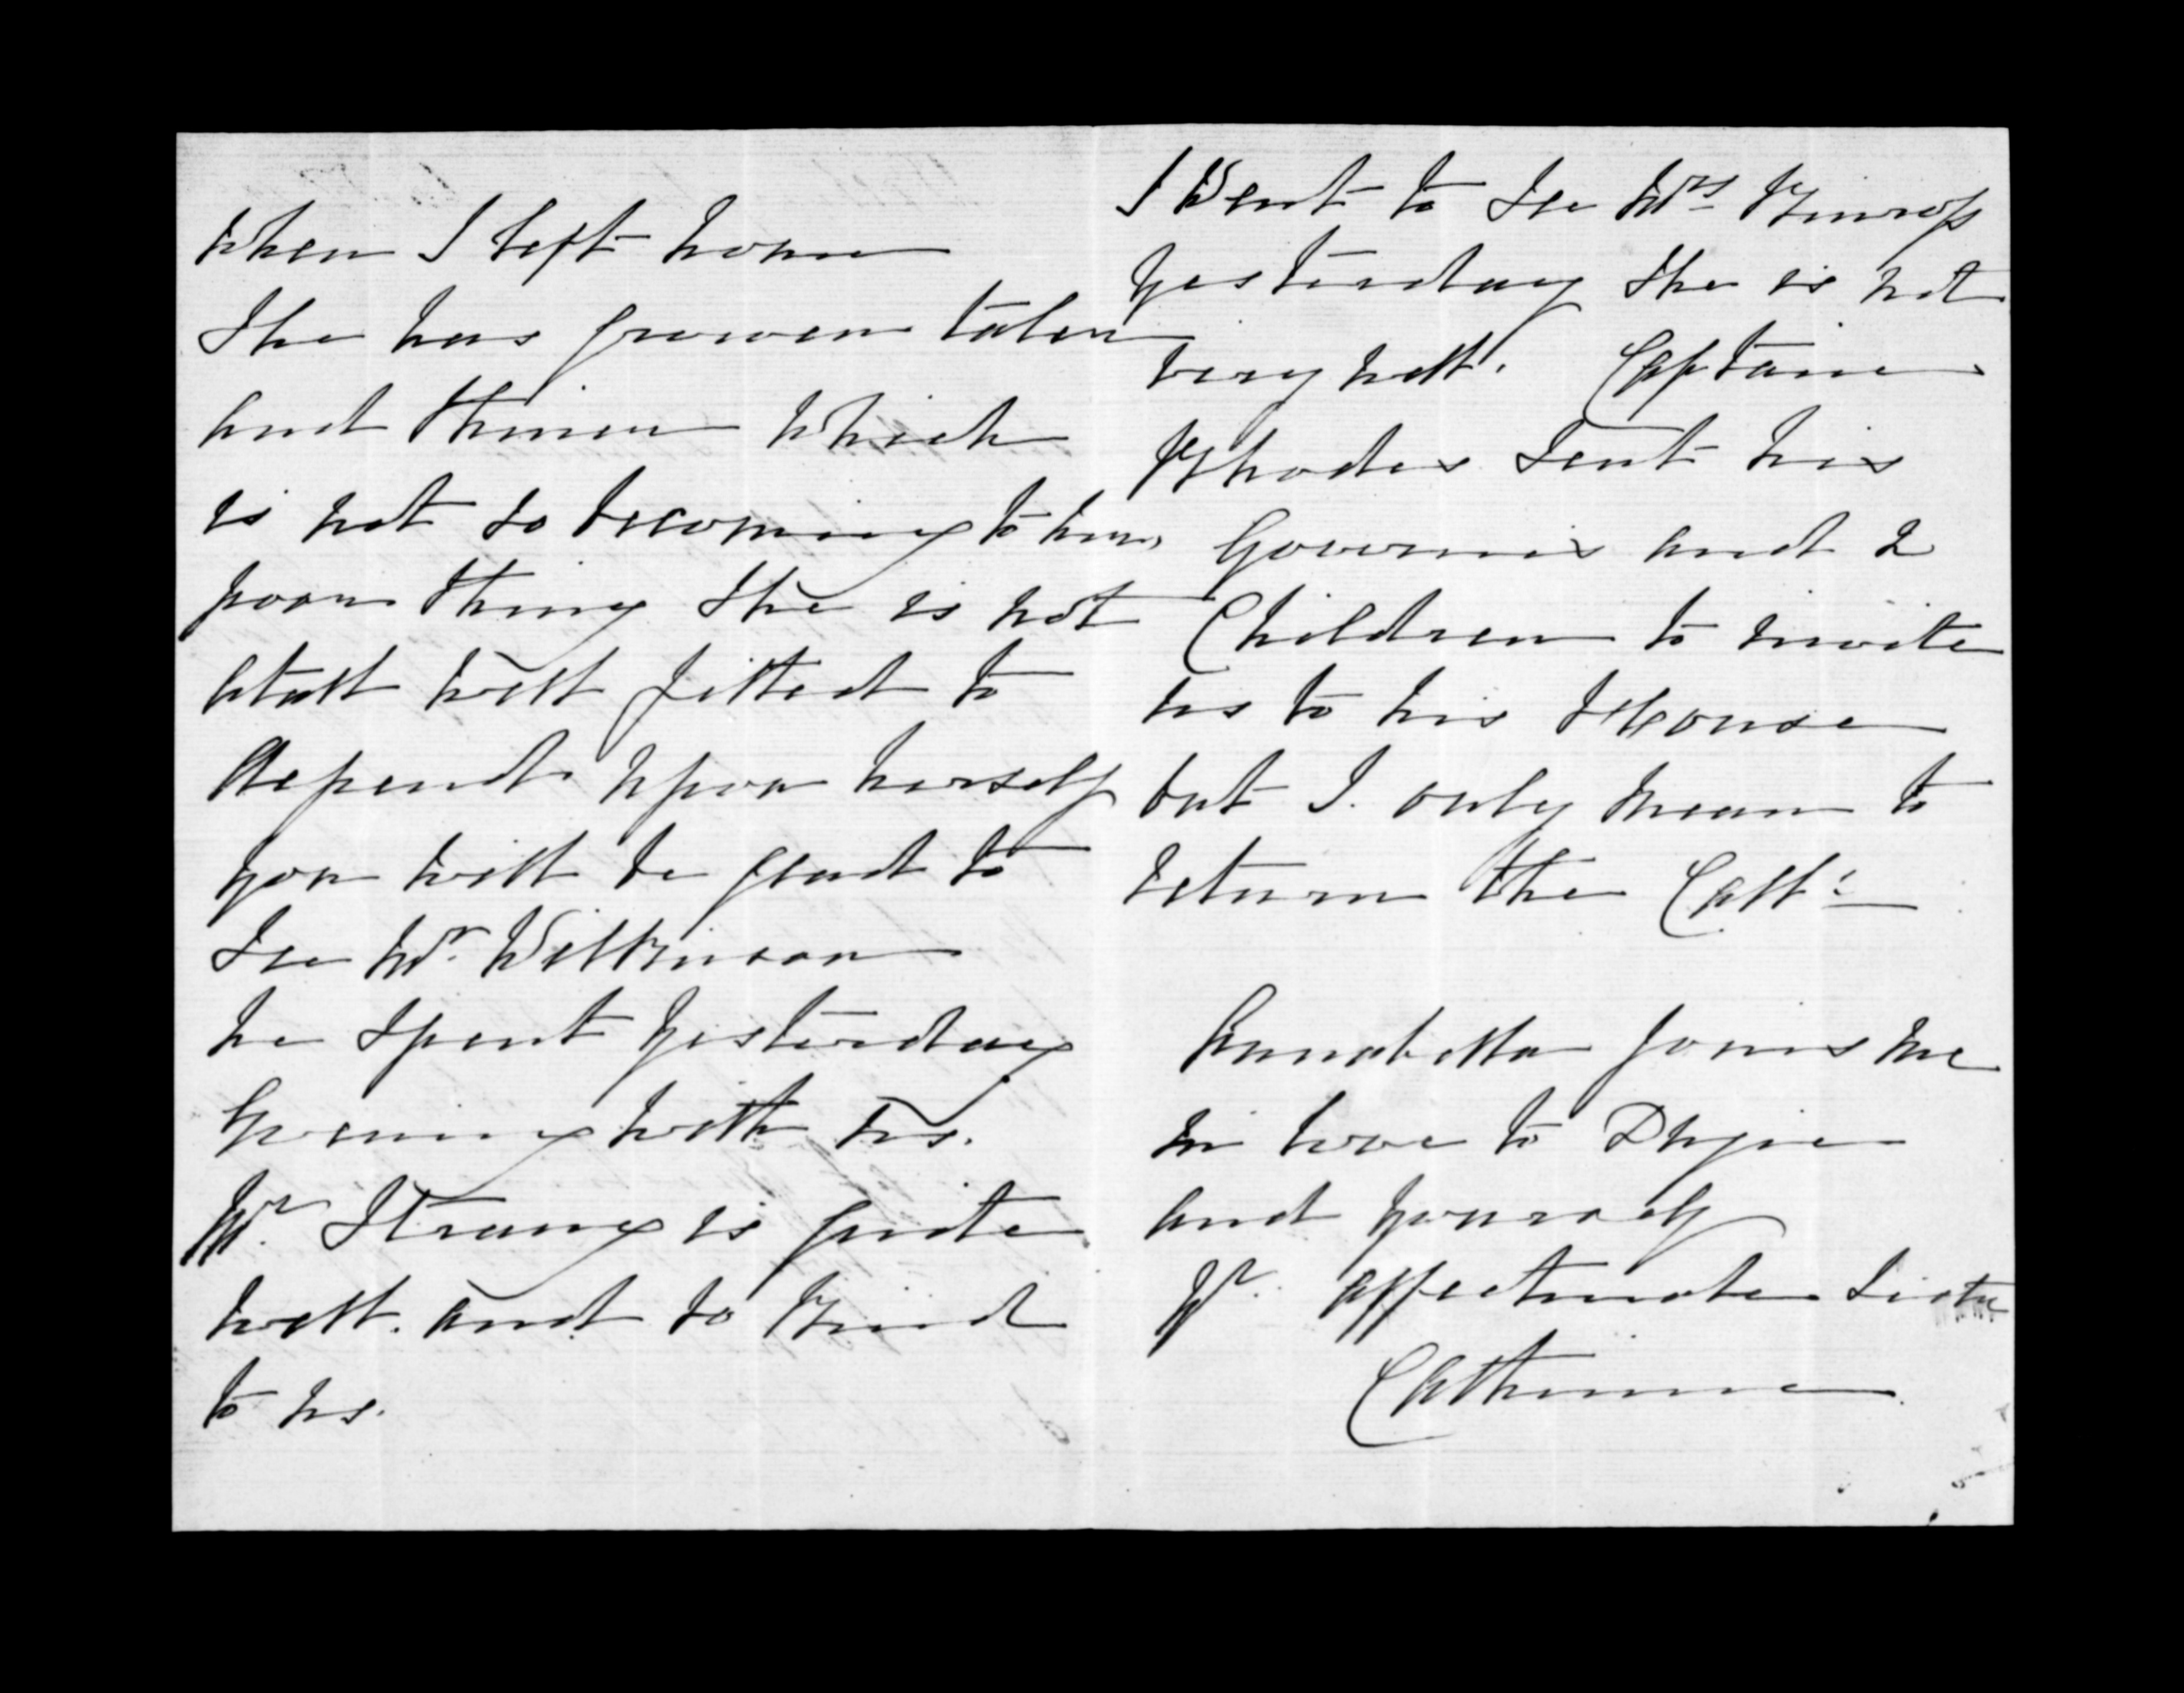 when I left home
She has growen taler
and thiner which
is not so becoming to her,
poor thing She is not
atall well fitted to
depend upon herself
you will be glad to
See Mr. Wilkinson
he Spent yesterday
Evening with us.
Mr. Strang is quite
well. and so Kind
to us.
I Went to See Mrs Kinross
yesterday She is not
very well. Captain
Rhodes Sent his
Governis and 2
Children to invite
us to his House
but I. only mean to
return the Call.
Annabella joins me
in love to
and yourself
Yr. affectionate Sister
Catherine